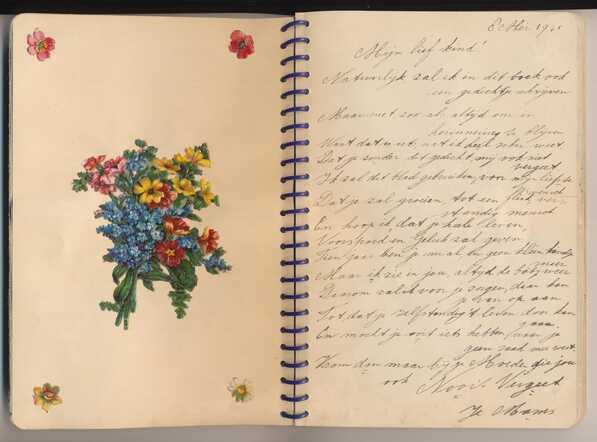 8 Mei 19
Mijn lief kind!
Natuurlijk zal ik in dit boek ook
een gedichtje schrijven
Maar niet zoo als altijd om in
herinnering te blijven
Want dat is iets, wat ik heel zeker weet
Dat je zonder dit gedicht mij ook niet
vergeet
Ik zal dit blad gebruiken, voor mijn
Dat je zal groeien, tot een
standig mensch
En hoop ik dat je hele leven
Voorspoed en Geluk zal geven
Tien jaar ben je nu al, en geen klein kindje
meer
Maar ik zie in jou, altijd de baby weer
Daarom zal ik voor je zorgen, daar kan
je van op aan
Tot dat je zelfstandig 't leven door kan
gaan
En mocht je ooit iets hebben, waar je
geen raad mee weet
Kom dan maar bij je Moeder die jou
ook Nooit Vergeet
Je Mama